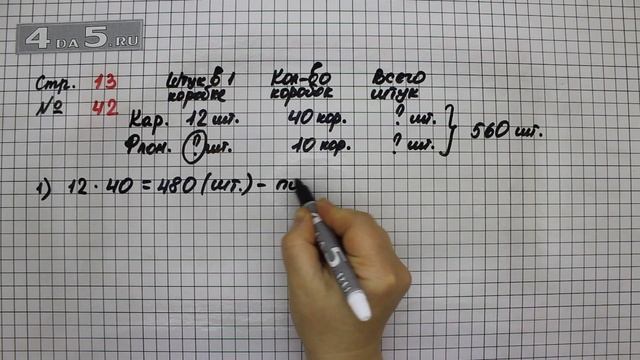 4DA5.RU
Стр. 13 Штук в 1 коробке Кол-во коробок Всего штук
№ 42
Кар. 12 шт. 40 кор. ? шт.
Флом. ? шт. 10 кор. ? шт. } 560 шт.
1) 12 · 40 = 480 (шт.) -